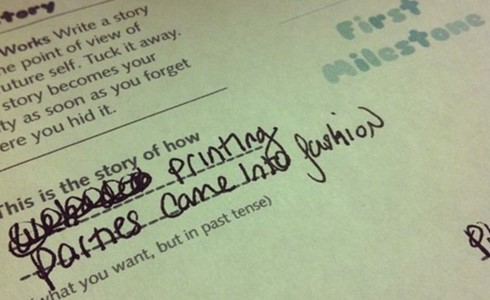 tory
Works Write a story
he point of view of
uture self. Tuck it away.
story becomes your
ty as soon as you forget
ere you hid it.
First
Milestone
This is the story of how
Printing
parties came into fashion
what you want, but in past tense)